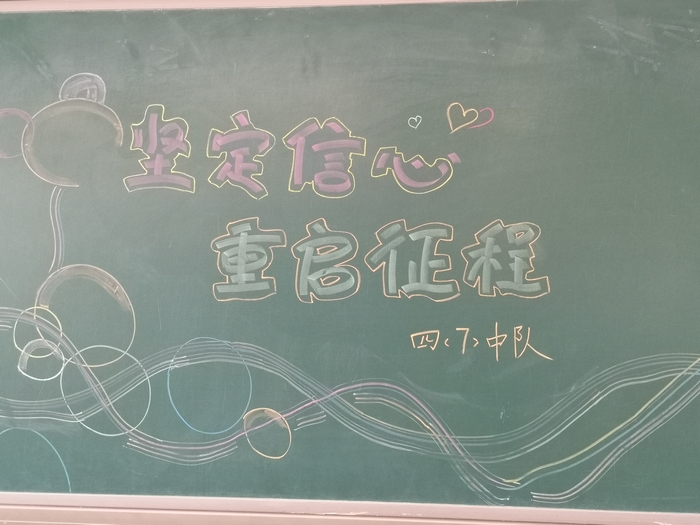 坚定信心
重启征程
四<7>中队